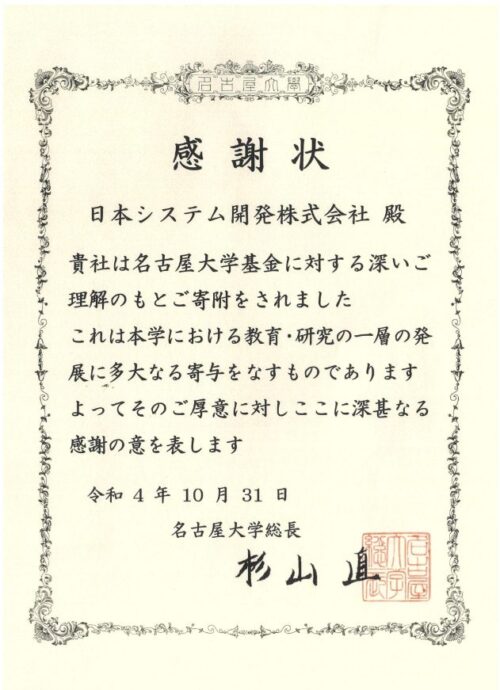 名古屋大學
感謝状
日本システム開発株式会社 殿
貴社は名古屋大学基金に対する深いご
理解のもとご寄附をされました
これは本学における教育・研究の一層の発
展に多大なる寄与をなすものであります
よってそのご厚意に対しここに深甚なる
感謝の意を表します
令和 4 年 10 月 31 日
名古屋大学総長
杉山直